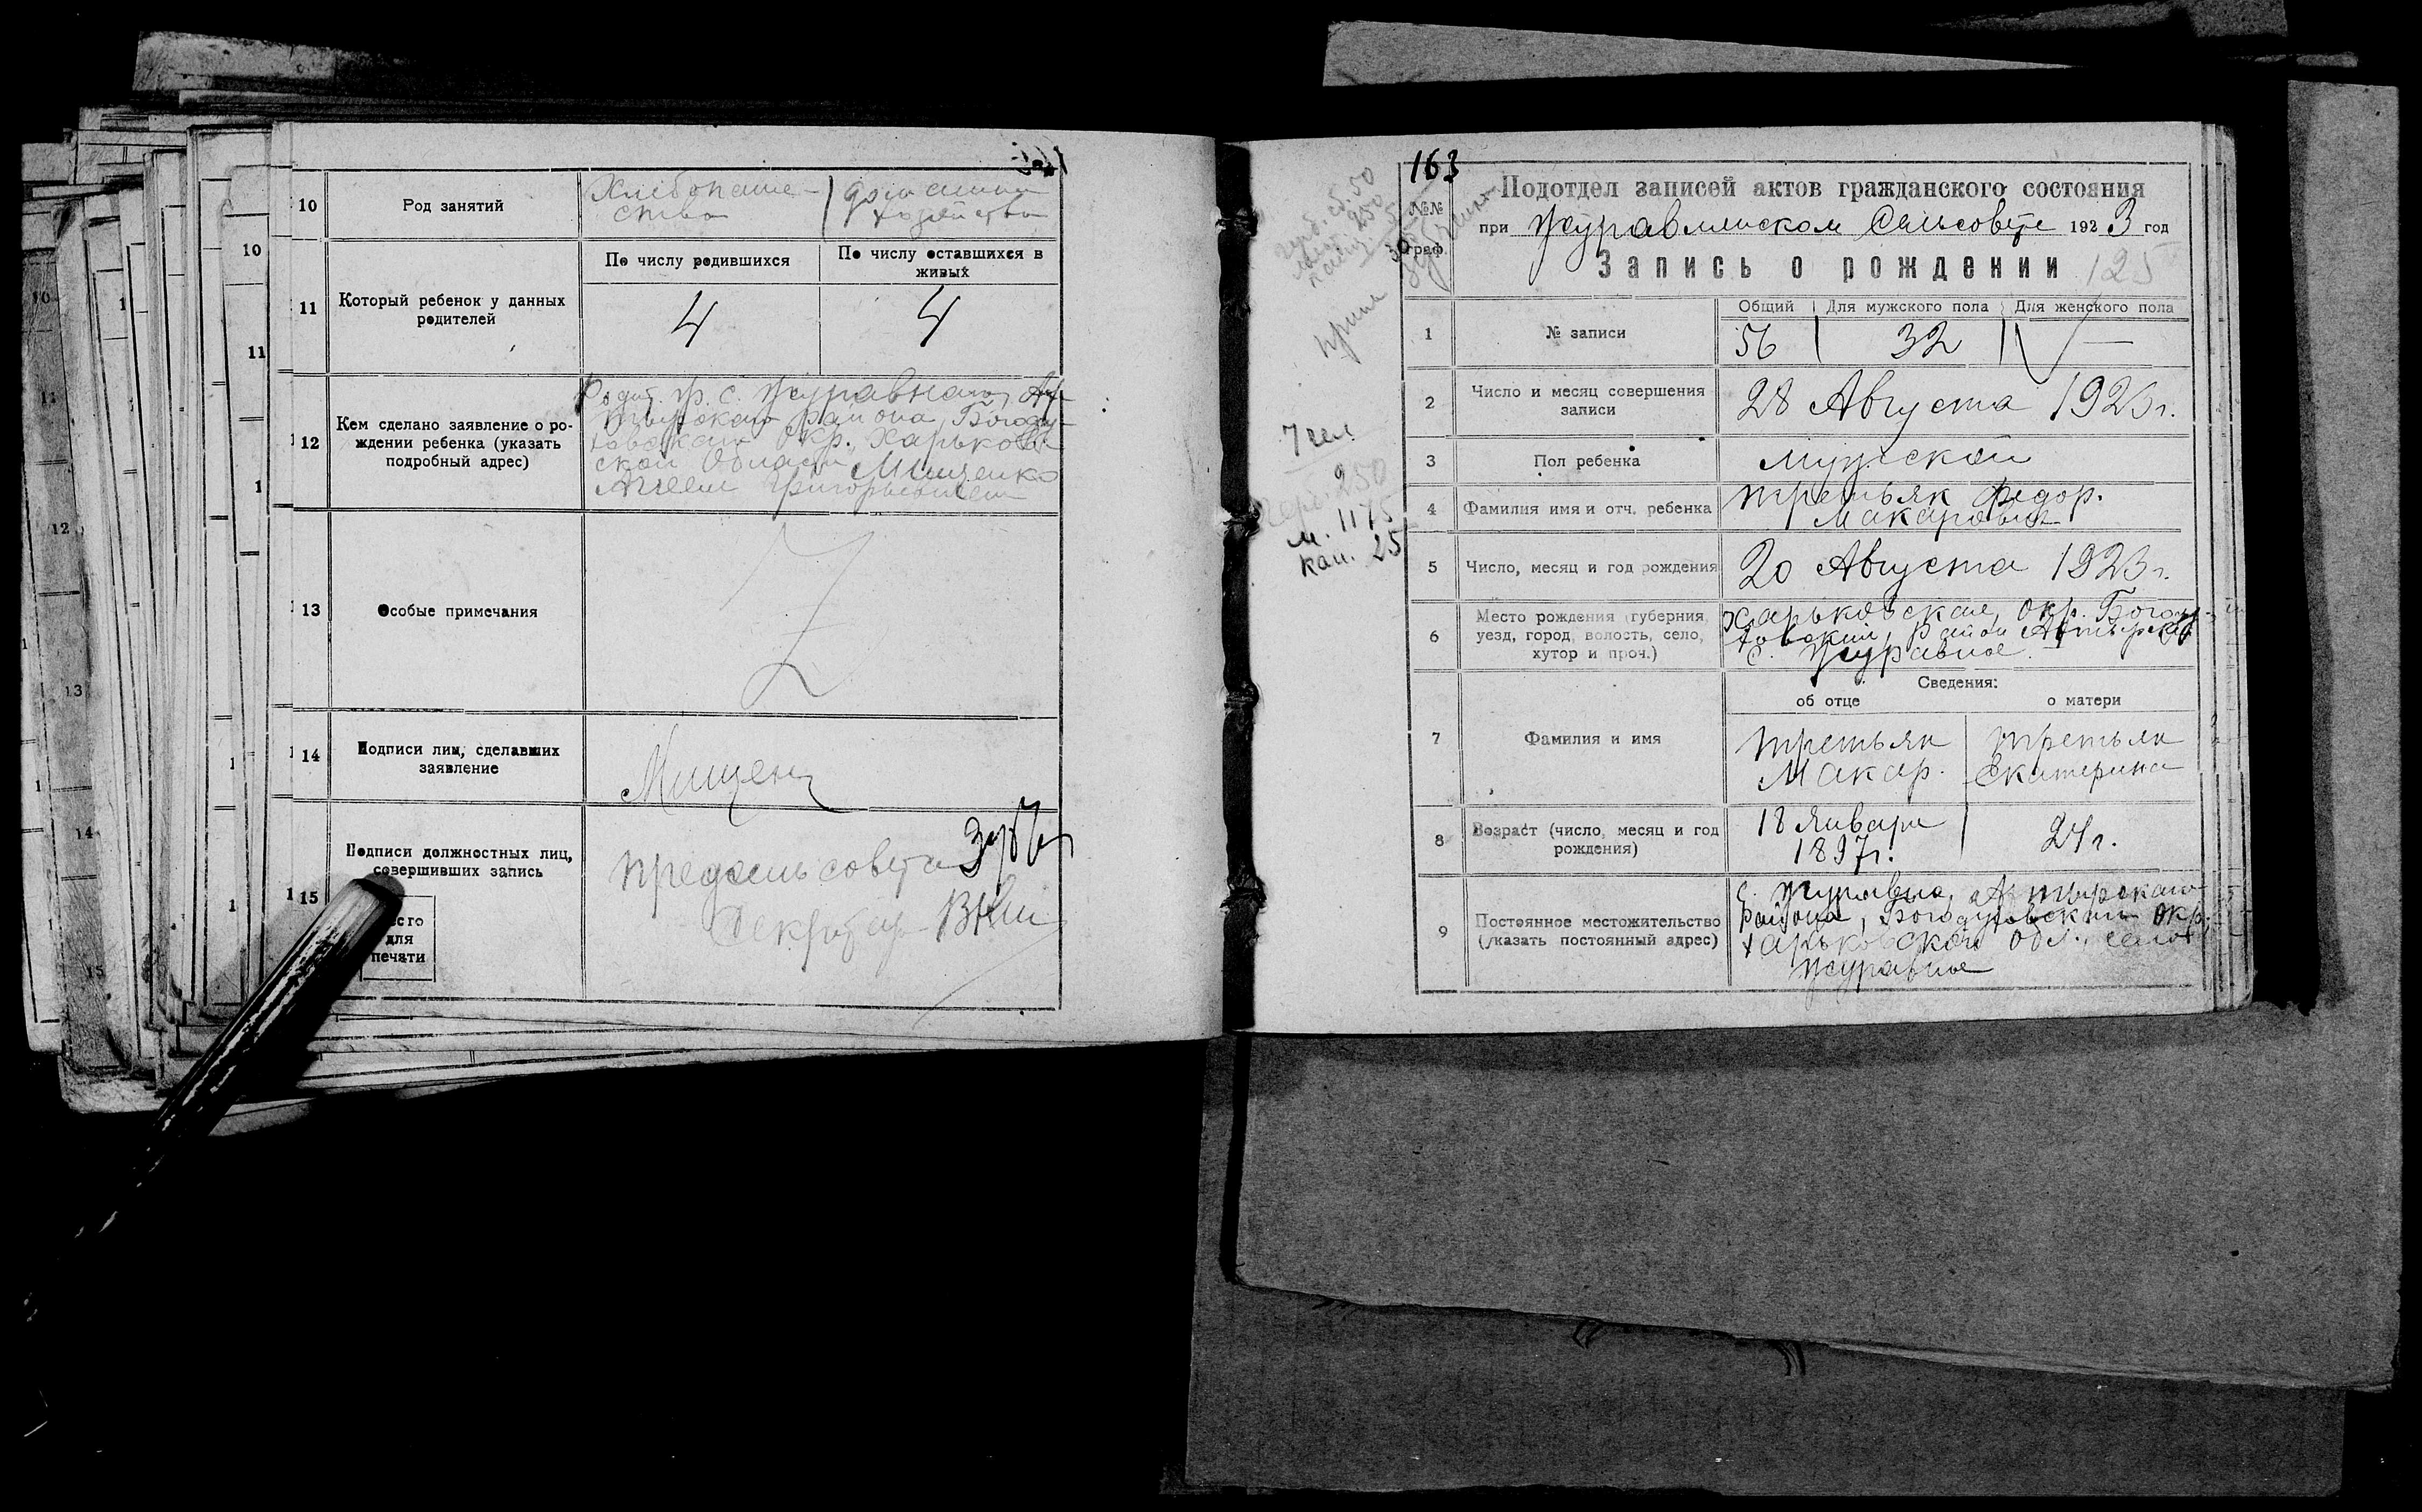 10
Род занятий
Хлебопаше-
ство
домашнее
хозяйство
11
Который ребенок у данных
родителей
По числу родившихся
По числу оставшихся в
живых
4
4
12
Кем сделано заявление о ро-
ждении ребенка (указать
подробный адрес)
гр. с. Журавного, Ах-
тырского района, Богоду-
ховского Окр. Харьков
ской Области Мищенко
Григорьевичем
13
Особые примечания
14
Подписи лиц, сделавших
заявление
Мищен
15
Подписи должностных лиц,
совершивших запись
для
печати
Предсельсовета
Секретар
163
№№
граф
Подотдел записей актов гражданского состояния
при Журавлинском Сельсовете 1923 год
Запись о рождении
125
1
№ записи
Общий
Для мужского пола
Для женского пола
56
32
—
2
Число и месяц совершения
записи
28 Августа 1923 г.
3
Пол ребенка
Мужской
4
Фамилия имя и отч. ребенка
Третьяк Федор.
Макарович
5
Число, месяц и год рождения
20 Августа 1923 г.
6
Место рождения (губерния,
уезд, город, волость, село,
хутор и проч.)
Харьковская, Окр. Богоду-
ховский, Район Ахтырский
с. Журавное.
7
Фамилия и имя
Сведения:
об отце
о матери
Третьяк
Макар.
Третьяк
Екатерина
8
Возраст (число, месяц и год
рождения)
18 Января
1897 г.
24 г.
9
Постоянное местожительство
(указать постоянный адрес)
с. Журавна, Ахтырского
Района, Богодуховский Окр.
Харьковской обл. село
Журавное
7 чел
250
м. 1175
кан. 25